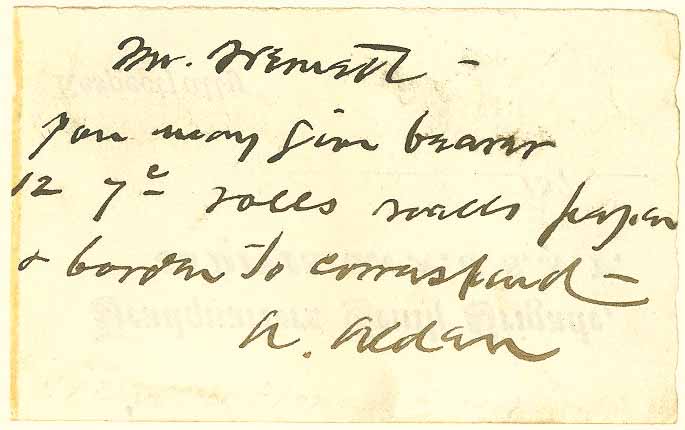 Mr.
you may give bearer
12 7c rolls walls paper
& border to correspond –
A. Alden